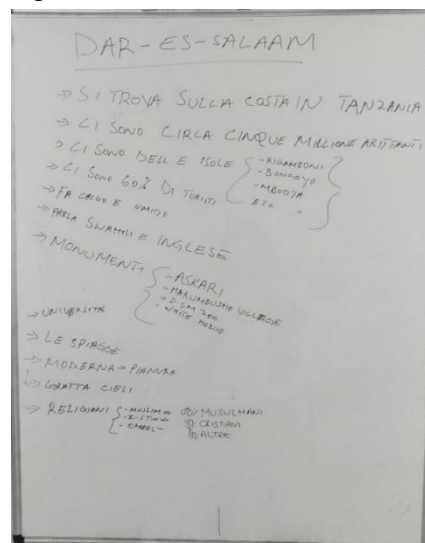 DAR-ES-SALAAM
→ SI TROVA SULLA COSTA IN TANZANIA
→ CI SONO CIRCA CINQUE MILLIONE ABITANTI
→ CI SONO DELLE ISOLE { - KIGAMBONI
- BONGOYO
- MBUDYA
ETC
→ CI SONO 60% DI TURISTI
→ FA CALDO E UMIDO
→ PARLA SWAHILI E INGLESE
→ MONUMENTI { - ASKARI
- MAKUMBUSHO VILLAGE
- DSM ZOO
- WHITE HOUSE
→ UNIVERSITÀ
→ LE SPIAGGE
→ MODERNA = PIANURA
→ GRATTA CIELI
→ RELIGIONI { - MUSULMANI
- CRISTIANI
- ALTRE